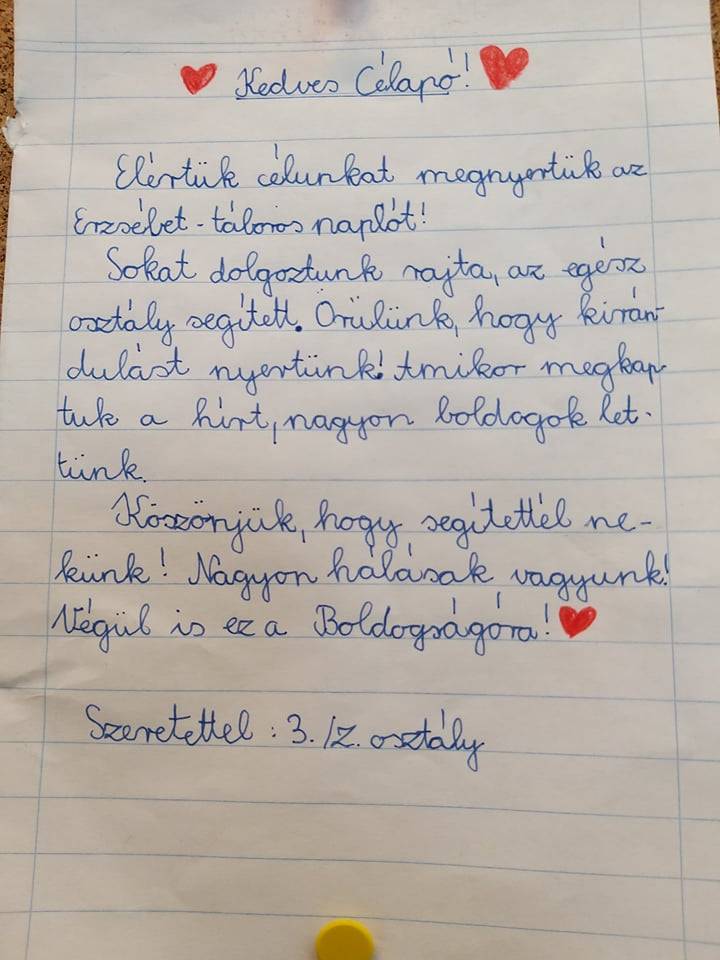 Kedves Célapó!
Elértük célunkat megnyertük az
Erzsébet-táloros naplót!
Sokat dolgoztunk rajta, az egész
osztály segített. Örülünk, hogy kirán-
dulást nyertünk! Amikor megkap-
tuk a hírt, nagyon boldogok let-
tünk.
Köszönjük, hogy segítettél ne-
künk! Nagyon hálásak vagyunk!
Végül is ez a Boldogságóra!
Szeretettel: 3./z. osztály